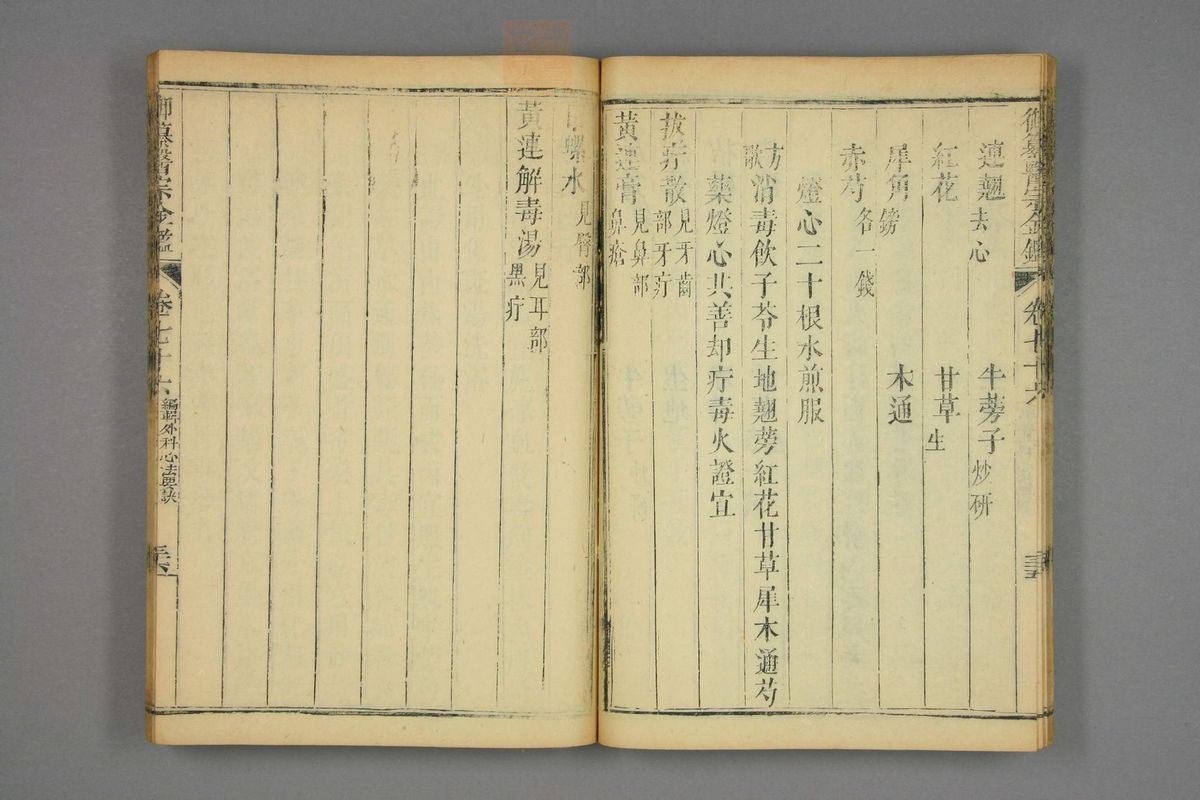 御纂醫宗金鑑 卷七十六 三十五
連翹去心 牛蒡子炒研
紅花 甘草生
犀角鎊 木通
赤芍各一錢
燈心二十根水煎服
方歌 消毒飲子苓生地翹蒡紅花甘草犀木通芍
藥燈心共善却疔毒火證宜
拔疔散見牙齒部牙疔
黃連膏見鼻部鼻瘡
螺水見臂部
黃連解毒湯見耳部黑疔
御纂醫宗金鑑 卷七十六 編輯外科心法要訣